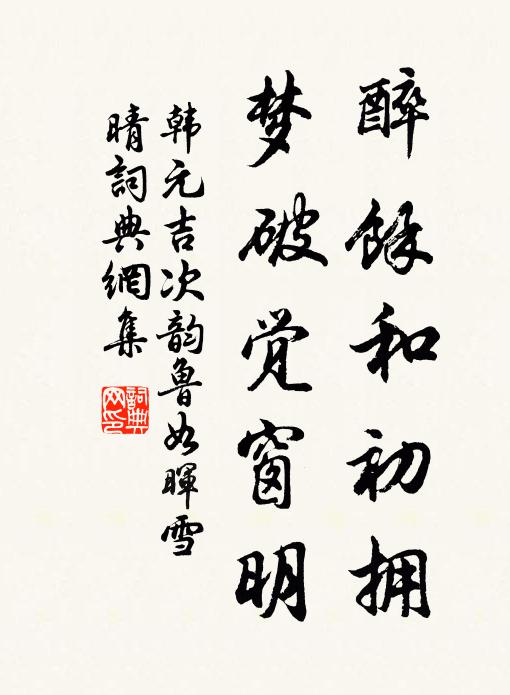 醉餘和初拥
梦破觉窗明
韩元吉次韵鲁如晖雪
晴词典網集
詞典网印